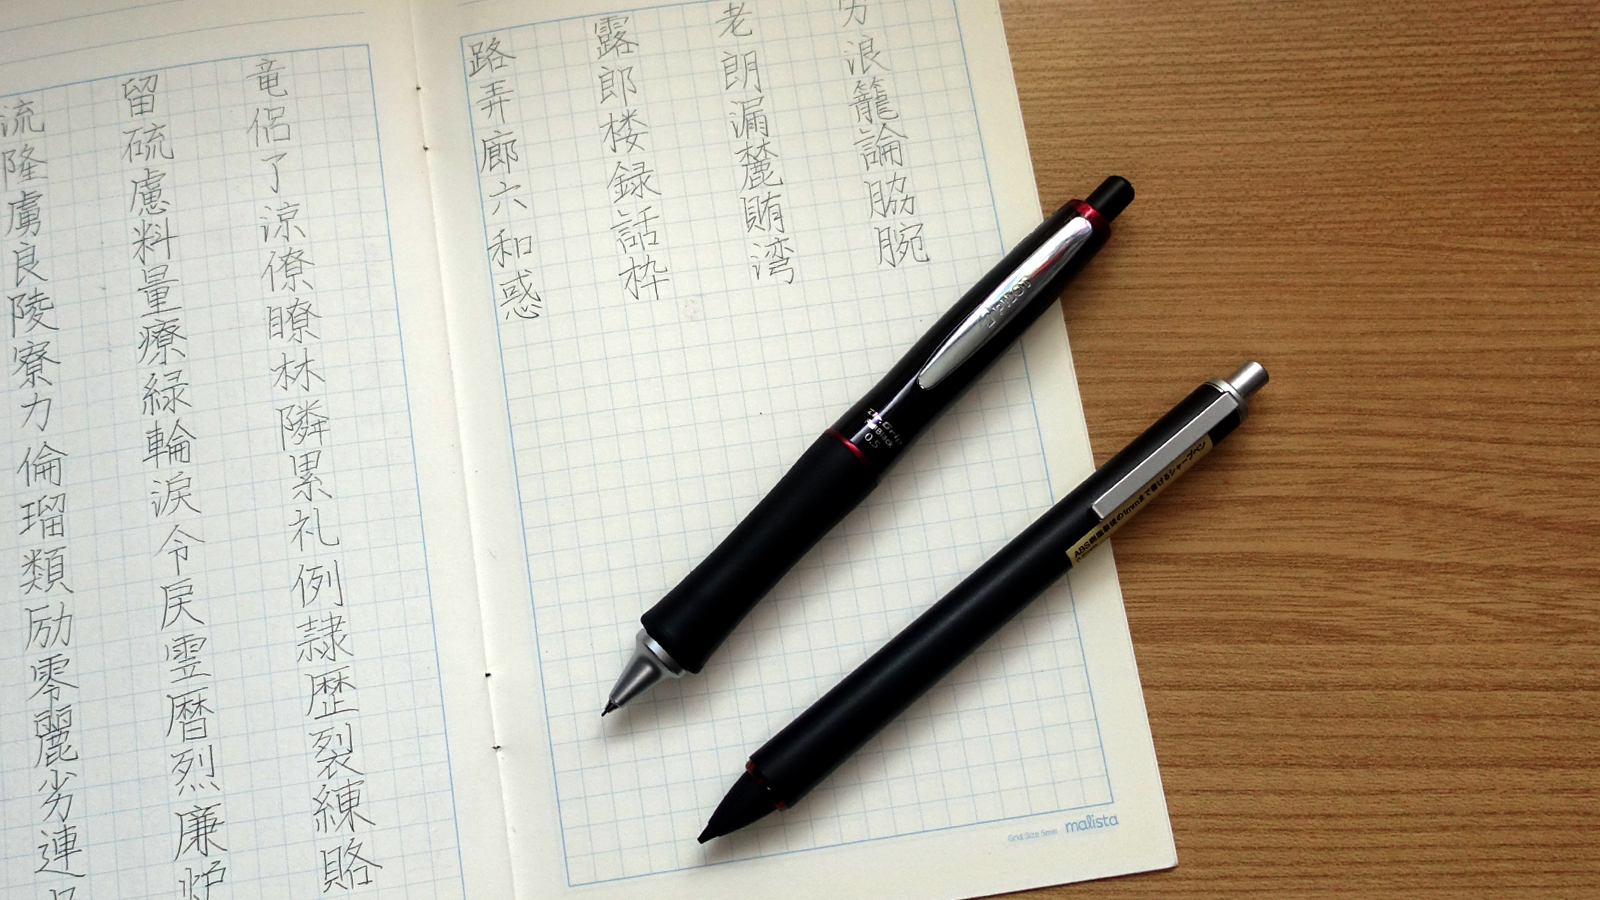 流隆虜良陵寮力倫瑠類励零麗劣連
留硫慮料量療緑輪涙令戻霊暦烈廉炉
竜侶了涼僚瞭林隣累礼例隷歴裂練賂
路弄廊六和惑
露郎楼録話枠
老朗漏麓賄湾
労浪籠論脇腕
PILOT
Dr.Grip
G-Spec Black
0.5
ABS樹脂最後の1mmまで書けるシャープペン
Grid Size 5mm malista